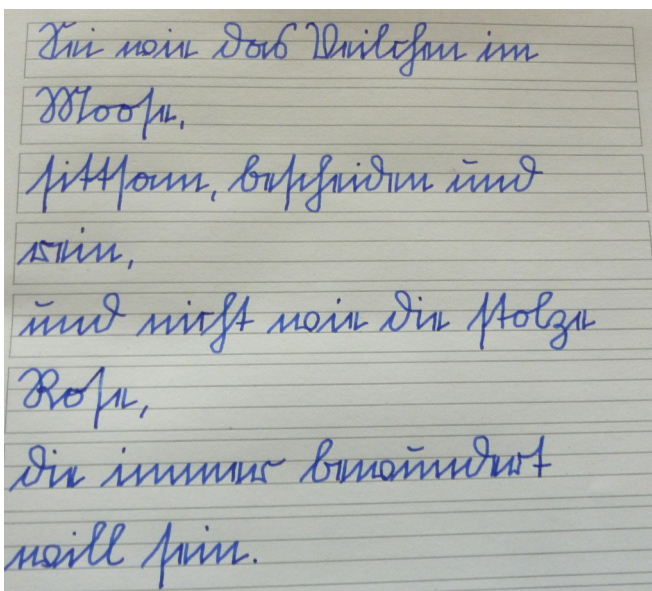 Sei wie das Veilchen im
Moose,
sittsam, bescheiden und
rein,
und nicht wie die stolze
Rose,
die immer bewundert
will sein.